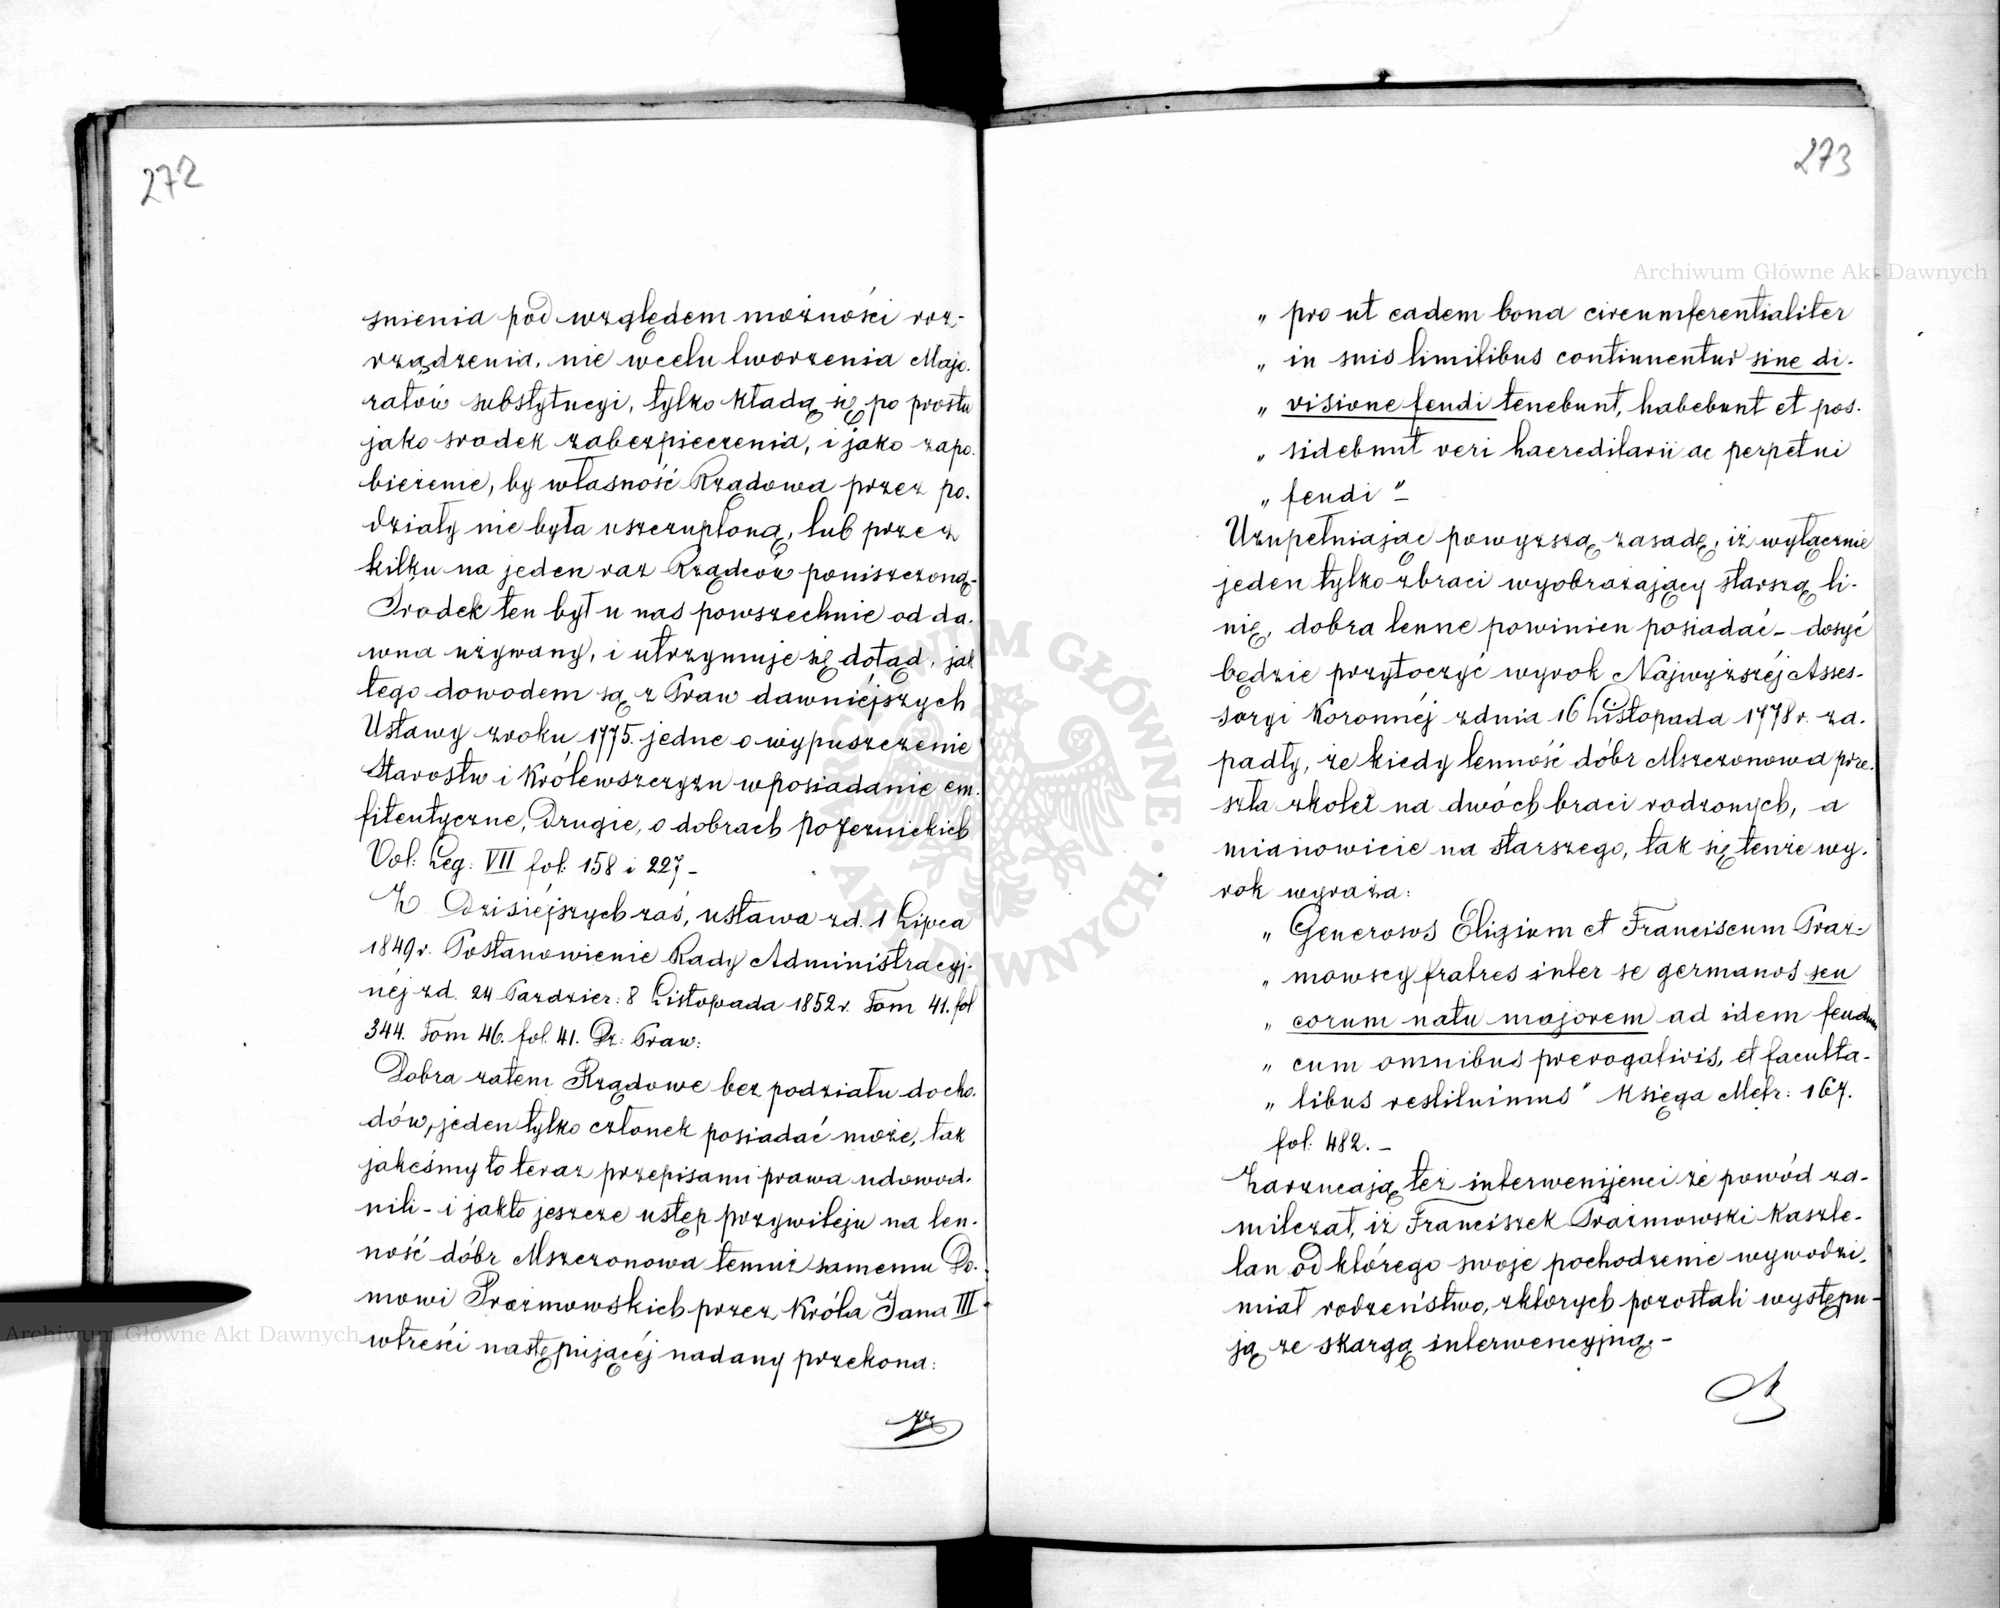 272
snienia pod względem możności roz-
rządzenia, nie wcelu tworzenia Majo-
ratów substytucyi, tylko kładą się po prostu
jako srodek zabezpieczenia, i jako zapo-
bieżenie, by własność Rządowa przez po-
działy nie była uszczuploną, lub przez
kilku na jeden raz Rządców poniszczoną-
Srodek ten był u nas powszechnie od da-
wna używany, i utrzymuje się dotąd, jak
tego dowodem są z Praw dawniéjszych
Ustawy zroku 1775. jedne o wypuszczenie
Starostw i Królewszczyzn wposiadanie em-
fiteutyczne, Drugie, o dobrach poJeznickich
Vol: Leg: VII fol: 158 i 227-
Z Dzisiéjszych zaś, ustawa zd. 1 Lipca
1849 r. Postanowienie Rady Administracyj-
néj zd. 24 Pazdzier: 8 Listopada 1852 r. Tom 41. fol
344. Tom 46. fol. 41. Dz: Praw:
Dobra zatem Rządowe bez podziału docho-
dów, jeden tylko członek posiadać może, tak
jakeśmy to teraz przepisami prawa udowod-
nili - i jakto jeszcze ustęp przywileju na len-
ność dóbr Mszczonowa temuż samemu Do-
mowi Prażmowskich przez Króla Jana III
wtreści następującéj nadany przekona:
273
Archiwum Główne Akt Dawnych
„ pro ut eadem bona circumferentialiter
„ in suis limitibus continuentur sine di-
„ visione feudi tenebunt, habebunt et pos-
„ sidebunt veri haereditarii ac perpetui
„ feudi "-
Uzupełniając powyższą zasadę, iż wyłącznie
jeden tylko zbraci wyobrażający starszą li-
nię, dobra lenne powinien posiadać - dosyć
będzie przytoczyć wyrok Najwyższéj Asses-
soryi Koronnéj zdnia 16 Listopada 1778 r. za-
padły, że kiedy lenność dóbr Mszczonowa prze-
szła zkolei na dwóch braci rodzonych, a
mianowicie na starszego, tak się tenże wy-
rok wyraża:
„ Generosos Eligium et Franciscum Praz-
„ mowscy fratres inter se germanos seu
„ eorum natu majorem ad idem feudum
„ cum omnibus prerogativis, et faculta-
„ tibus restituimus" Księga Metr: 167.
fol: 482. -
Zarzucają też interwenijenci że powód za-
milczał, iż Franciszek Prażmowski Kaszte-
lan od którego swoje pochodzenie wywodzi,
miał rodzeństwo, zktórych pozostali występu-
ją ze skargą interwencyjną. -
Archiwum Główne Akt Dawnych
ARCHIWUM GŁÓWNE AKT DAWNYCH